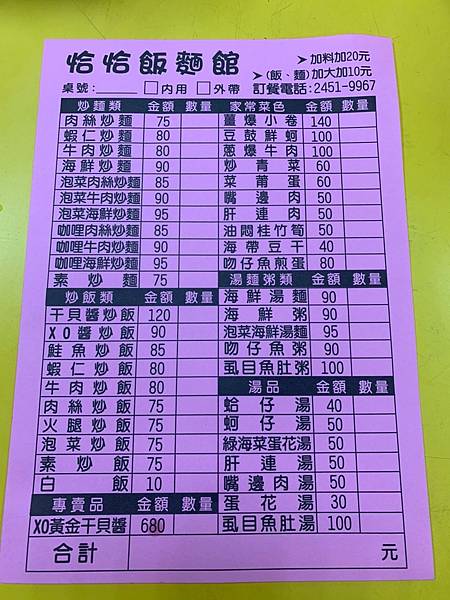 恰恰飯麵館
➤加料加20元
➤(飯、麵)加大加10元
桌號:______ □內用 □外帶 訂餐電話:2451-9967
炒麵類 金額 數量
肉絲炒麵 75
蝦仁炒麵 80
牛肉炒麵 80
海鮮炒麵 90
泡菜肉絲炒麵 85
泡菜牛肉炒麵 90
泡菜海鮮炒麵 95
咖哩肉絲炒麵 85
咖哩牛肉炒麵 90
咖哩海鮮炒麵 95
素炒麵 75
炒飯類 金額 數量
干貝醬炒飯 120
XO醬炒飯 90
鮭魚炒飯 85
蝦仁炒飯 80
牛肉炒飯 80
肉絲炒飯 75
火腿炒飯 75
泡菜炒飯 75
素炒飯 75
白飯 10
專賣品 金額 數量
XO黃金干貝醬 680
家常菜色 金額 數量
薑爆小卷 140
豆鼓鮮蚵 100
蔥爆牛肉 100
炒青菜 60
菜莆蛋 60
嘴邊肉 50
肝連肉 50
油悶桂竹筍 50
海帶豆干 40
吻仔魚煎蛋 80
湯麵粥類 金額 數量
海鮮湯麵 90
海鮮粥 90
泡菜海鮮湯麵 95
吻仔魚粥 90
虱目魚肚粥 100
湯品 金額 數量
蛤仔湯 40
蚵仔湯 50
綠海菜蛋花湯 50
肝連湯 50
嘴邊肉湯 50
蛋花湯 30
虱目魚肚湯 100
合計 元